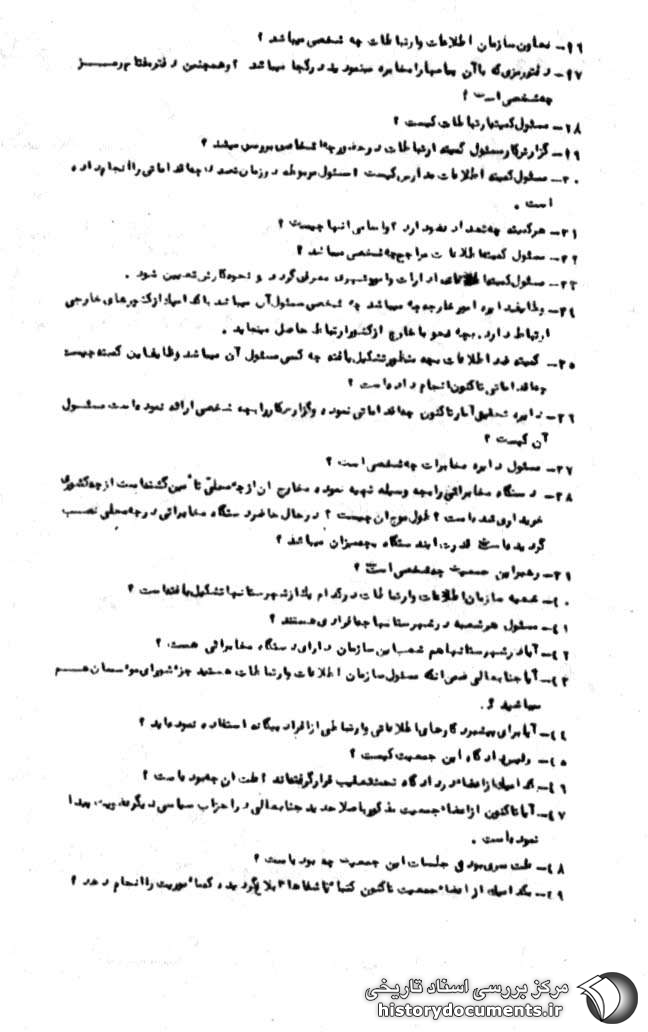 ۲۶- معاون سازمان اطلاعات وارتباطات چه شخصی میباشد ؟
۲۷- دفتررمزی که باآن پیامهارامخابره مینمودید درکجا میباشد ؟ وهمچنین دفترمفتاح رمز
چه شخصی است ؟
۲۸- مسئول کمیته ارتباطات کیست ؟
۲۹- گزارش کار مسئول کمیته ارتباطات درحضورچه اشخاصی بررسی میشد ؟
۳۰- مسئول کمیته اطلاعات مدارس کیست ؟ مسئول مربوطه درزمان تصدی چه اقداماتی راانجام داده
است .
۳۱- هرکمیته چه تعداد عضو دارد ؟ واسامی آنها چیست ؟
۳۲- مسئول کمیته اطلاعات مراجع چه شخصی میباشد ؟
۳۳- مسئول کمیته اطلاعات ادارات وامورشهری معرفی گردد و نحوه کارش تعیین شود .
۳۴- وظایف دایره امور خارجه چه میباشد چه شخصی مسئول آن میباشد باکدامیک ازکشورهای خارجی
ارتباط دارد . بچه نحو با خارج ازکشور ارتباط حاصل مینماید .
۳۵- کمیته ضد اطلاعات بچه منظور تشکیل یافته چه کسی مسئول آن میباشد وظایف این کمیته چیست
چه اقداماتی تاکنون انجام داده است ؟
۳۶- دایره تحقیق آمار تاکنون چه اقداماتی نموده وگزارش کاررابچه شخصی ارائه نموده است مسئول
آن کیست ؟
۳۷- مسئول دایره مخابرات چه شخصی است ؟
۳۸- دستگاه مخابراتی رابچه وسیله تهیه نموده مخارج آن ازچه محلی تأمین گشته است ازچه کشوری
خریداری شده است ؟ طول موج آن چیست ؟ درحال حاضر دستگاه مخابراتی درچه محلی نصب
گردیده است قدرت این دستگاه بچه میزان میباشد ؟
۳۹- رهبراین جمعیت چه شخصی است ؟
۴۰- شعبه سازمان اطلاعات وارتباطات درکدام یک ازشهرستانها تشکیل یافته است ؟
۴۱- مسئول هرشعبه درشهرستانها چه افرادی هستند ؟
۴۲- آیا درشهرستانها هم شعب این سازمان دارای دستگاه مخابراتی هست ؟
۴۳- آیا جنابعالی ضمن آنکه مسئول سازمان اطلاعات وارتباطات هستید جزء شورای موسسان هم
میباشید ؟ .
۴۴- آیا برای پیشبرد کارهای اطلاعاتی وارتباطی ازافراد بیگانه استفاده نموده اید ؟
۴۵- رئیس دادگاه این جمعیت کیست ؟
۴۶- کدامیک ازاعضاء در دادگاه تحت تعقیب قرارگرفته اند ؟ علت آن چه بوده است ؟
۴۷- آیا تاکنون ازاعضاء جمعیت مذکور باصلاحدید جنابعالی در احزاب سیاسی دیگر عضویت پیدا
نموده است .
۴۸- علت سری بودن جلسات این جمعیت چه بوده است ؟
۴۹- بکدامیک از اعضاء جمعیت تاکنون کتباً یا شفاهاً ابلاغ گردیده که مأموریت راانجام دهد ؟
مرکز بررسی اسناد تاریخی
historydocuments.ir